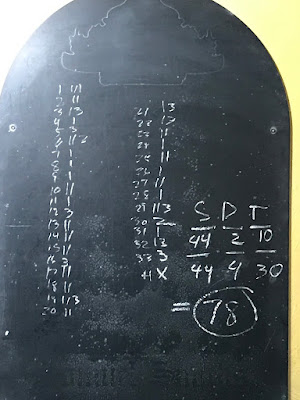 1 111
2 11
3 13
4 1
5 3
6 11 2
7 1
8 1
9 1
10 11
11 1
12 3
13 11
14 11
15 11
16 3
17 11
18 11
19 113
20 11
21 13
22 13
23 11
24 1
25 11
26 1
27 11
28 1
29 113
30 2
31 1
32 13
33 3
H X
S D T
44 2 10
44 4 30
= 78